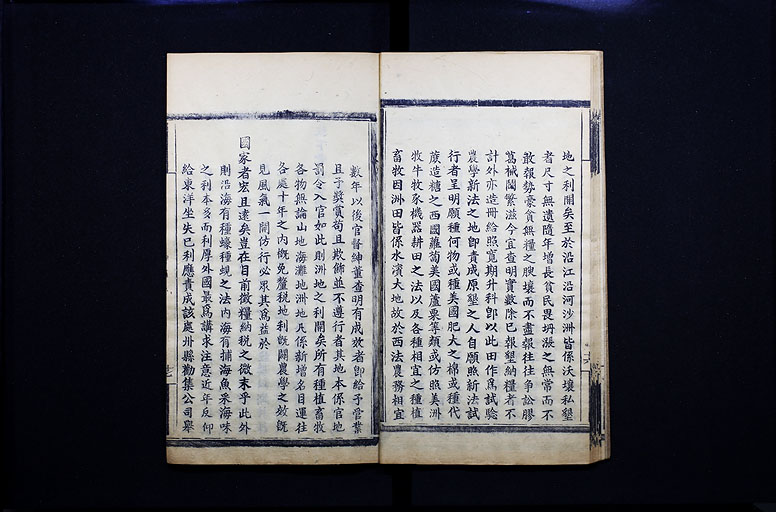 地之利開矣至於沿江沿河沙洲皆係沃壤私墾
者尺寸無遺隨年增長貧民畏坍漲之無常而不
敢報勢豪貪無糧之腴壤而不盡報往往爭訟膠
葛械鬪繁滋今宜查明實數除已報墾納糧者不
計外亦造冊給照寬期升科卽以此田作爲試驗
農學新法之地卽責成原墾之人自願照新法試
行者呈明願種何物或種美國肥大之棉或種代
蔗造糖之西國蘿蔔美國蘆粟等類或仿照美洲
牧牛牧豕機器耕田之法以及各種相宜之種植
畜牧因洲田皆係水濱大地故於西法農務相宜
數年以後官督紳董查明有成效者卽給予管業
且予獎賞苟且欺飾並不遵行者其地本係官地
罰令入官如此則洲地之利開矣所有種植畜牧
各物無論山地海灘地洲地凡係新增名目運往
各處十年之內槪免釐稅地利旣闢農學之效旣
見風氣一開仿行必衆其爲益於
國家者宏且遠矣豈在目前徵糧納稅之微末乎此外
則沿海有種蠔種蜆之法內海有捕海魚采海味
之利本多而利厚外國最爲講求注意近年反仰
給東洋坐失已利應責成該處州縣勸集公司舉